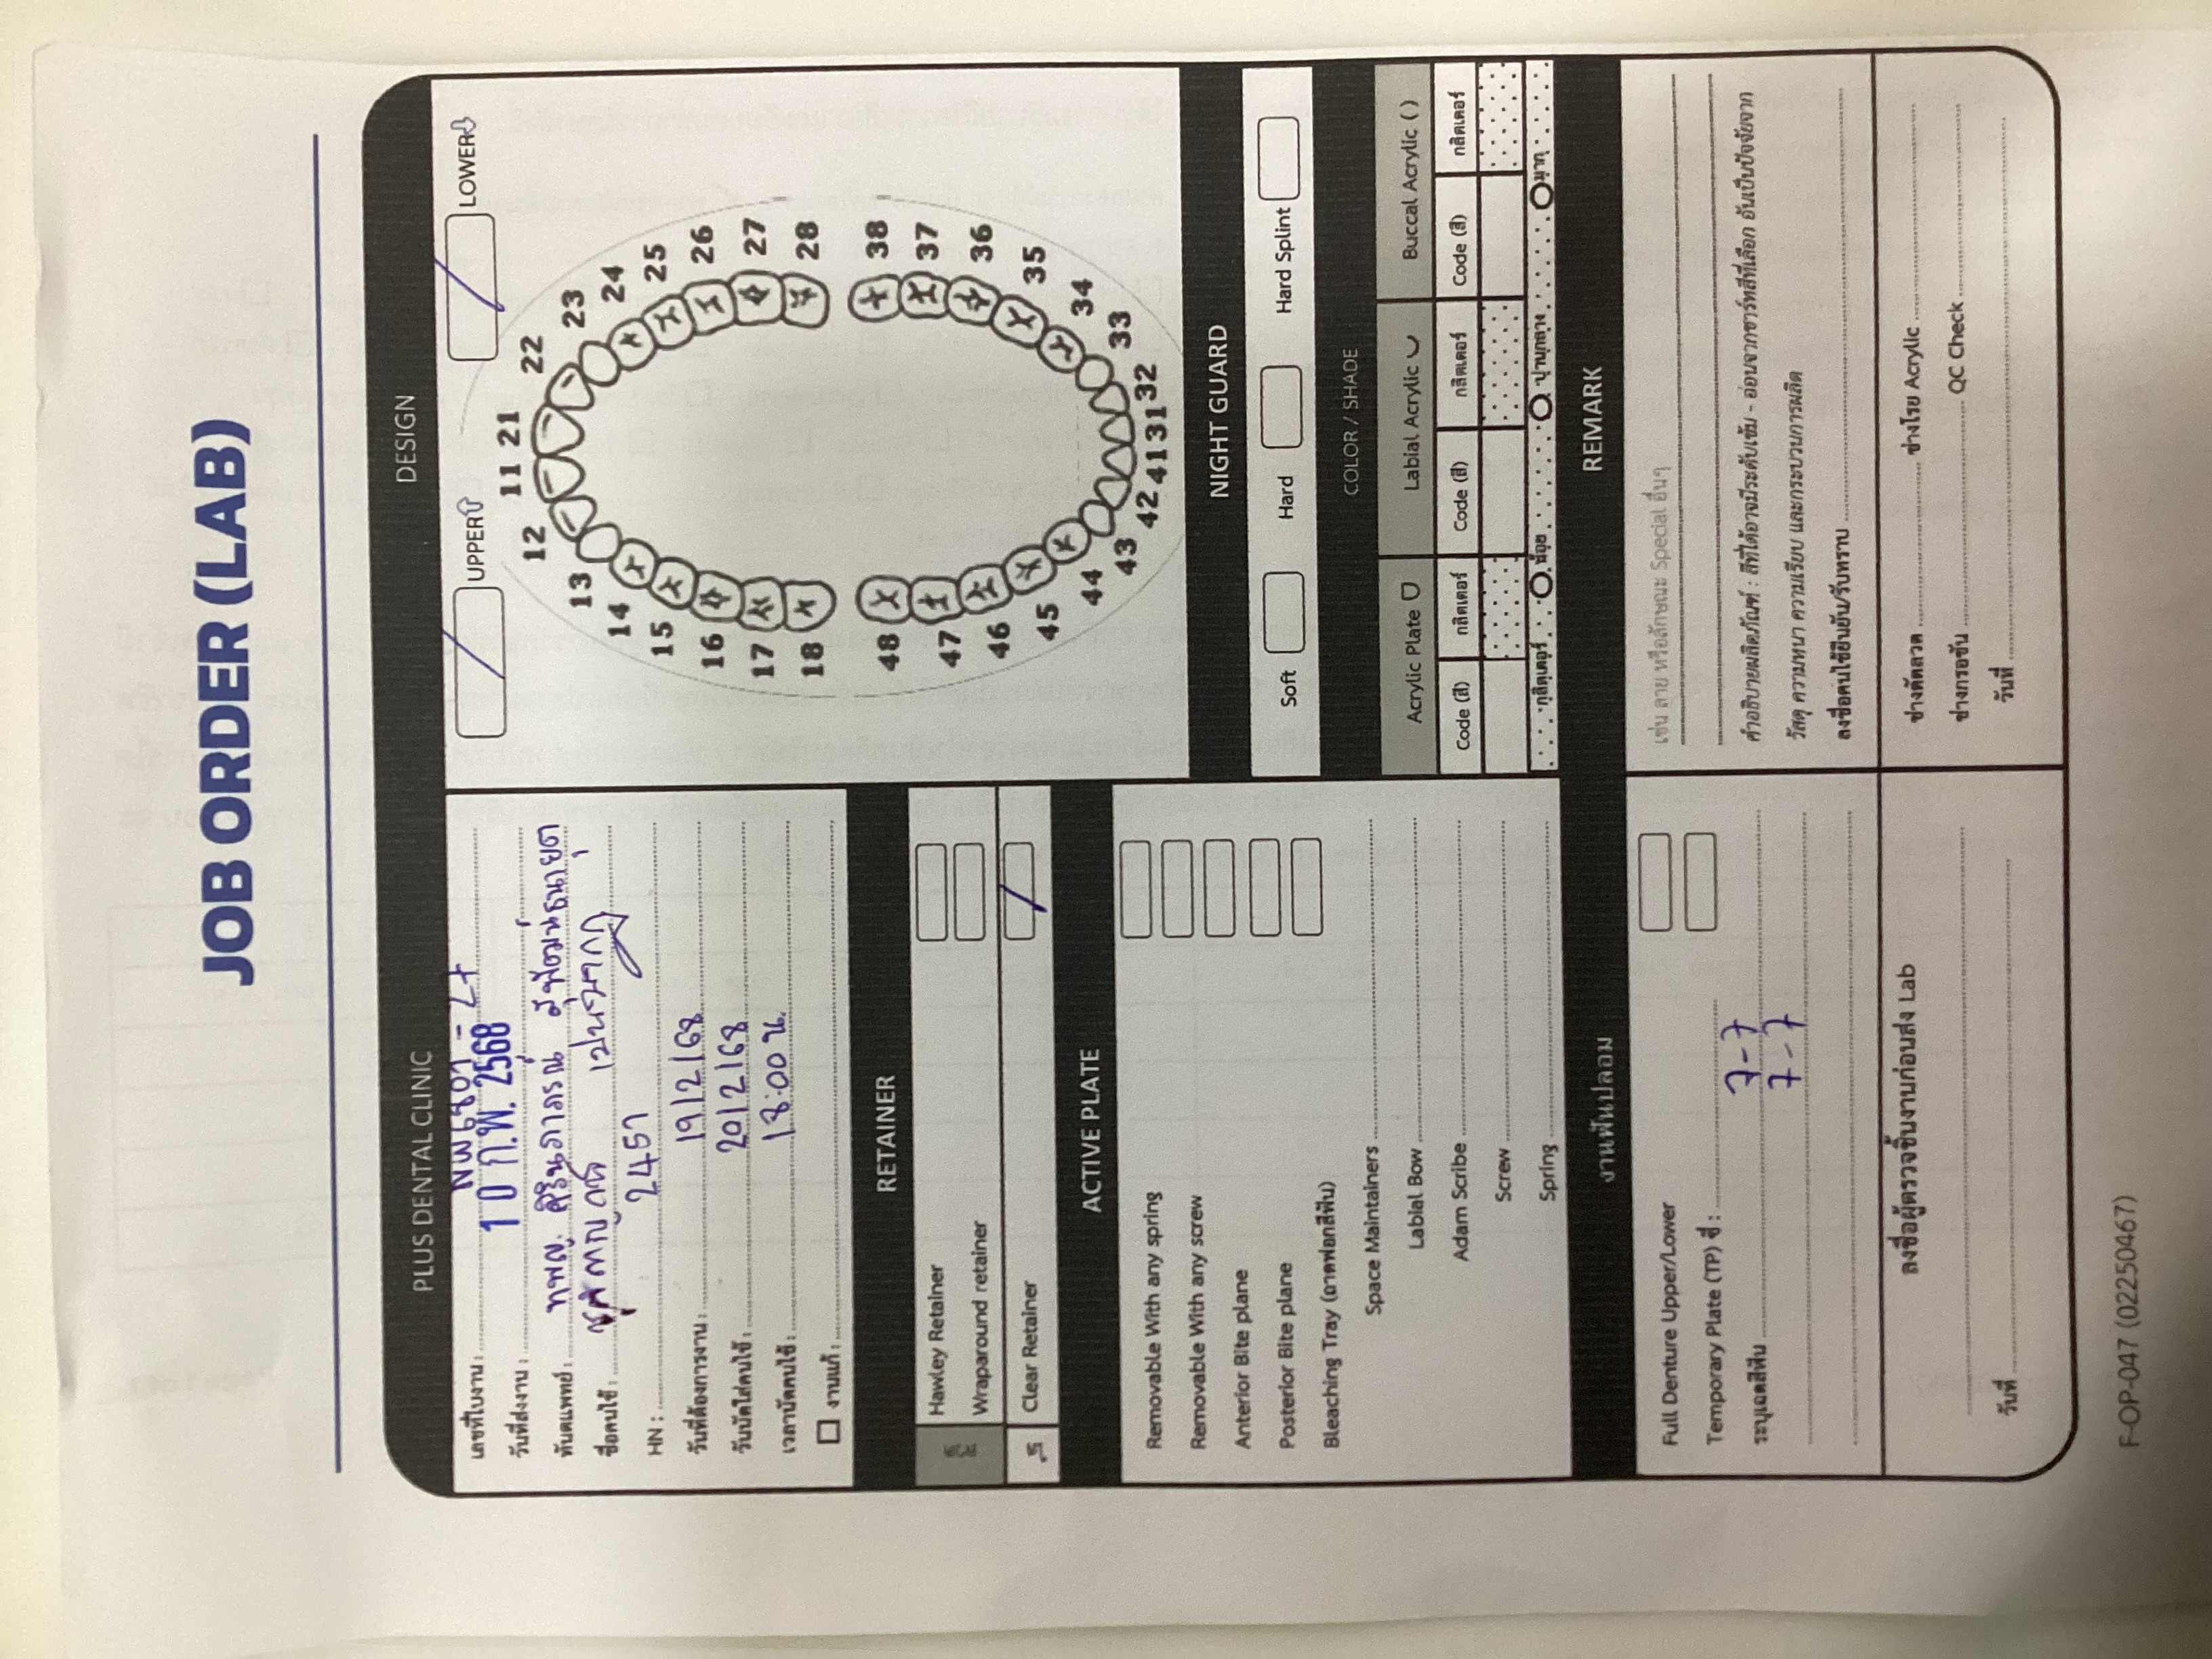 JOB ORDER (LAB)
PLUS DENTAL CLINIC
เลขที่ใบงาน : - 27
วันที่ส่งงาน : 10 ก.พ. 2568
ทันตแพทย์ : ทพญ. ศิรินภาภรณ์
ชื่อคนไข้ :
HN : 2457
วันที่ต้องการงาน : 19/2/68
วันนัดใส่คนไข้ : 20/2/68
เวลานัดคนไข้ : 18:00 น.
งานแก้ :
RETAINER
ลวด
Hawley Retainer
Wraparound retainer
ใส
Clear Retainer
ACTIVE PLATE
Removable With any spring
Removable With any screw
Anterior Bite plane
Posterior Bite plane
Bleaching Tray (ถาดฟอกสีฟัน)
Space Maintainers
Labial Bow
Adam Scribe
Screw
Spring
งานฟันปลอม
Full Denture Upper/Lower
Temporary Plate (TP) ซี่ :
ระบุเฉดสีฟัน 7-7
7-7
ลงชื่อผู้ตรวจชิ้นงานก่อนส่ง Lab
วันที่
DESIGN
UPPER LOWER
11 21
12 22
13 23
14 24
15 25
16 26
17 27
18 28
48 38
47 37
46 36
45 35
44 34
43 33
42 41 31 32
NIGHT GUARD
Soft Hard Hard Splint
COLOR / SHADE
Acrylic Plate Labial Acrylic Buccal Acrylic ( )
Code (สี) กลิตเตอร์ Code (สี) กลิตเตอร์ Code (สี) กลิตเตอร์
กลิตเตอร์ น้อย ปานกลาง มาก
REMARK
เช่น ลาย หรือลักษณะ Special อื่นๆ
คำอธิบายผลิตภัณฑ์ : สีที่ได้อาจมีระดับเข้ม - อ่อนจากชาร์ทสีที่เลือก อันเป็นปัจจัยจาก
วัสดุ ความหนา ความเรียบ และกระบวนการผลิต
ลงชื่อคนไข้ยืนยัน/รับทราบ
ช่างดัดลวด ช่างโรย Acrylic
ช่างกรอขัน QC Check
วันที่
F-OP-047 (02250467)